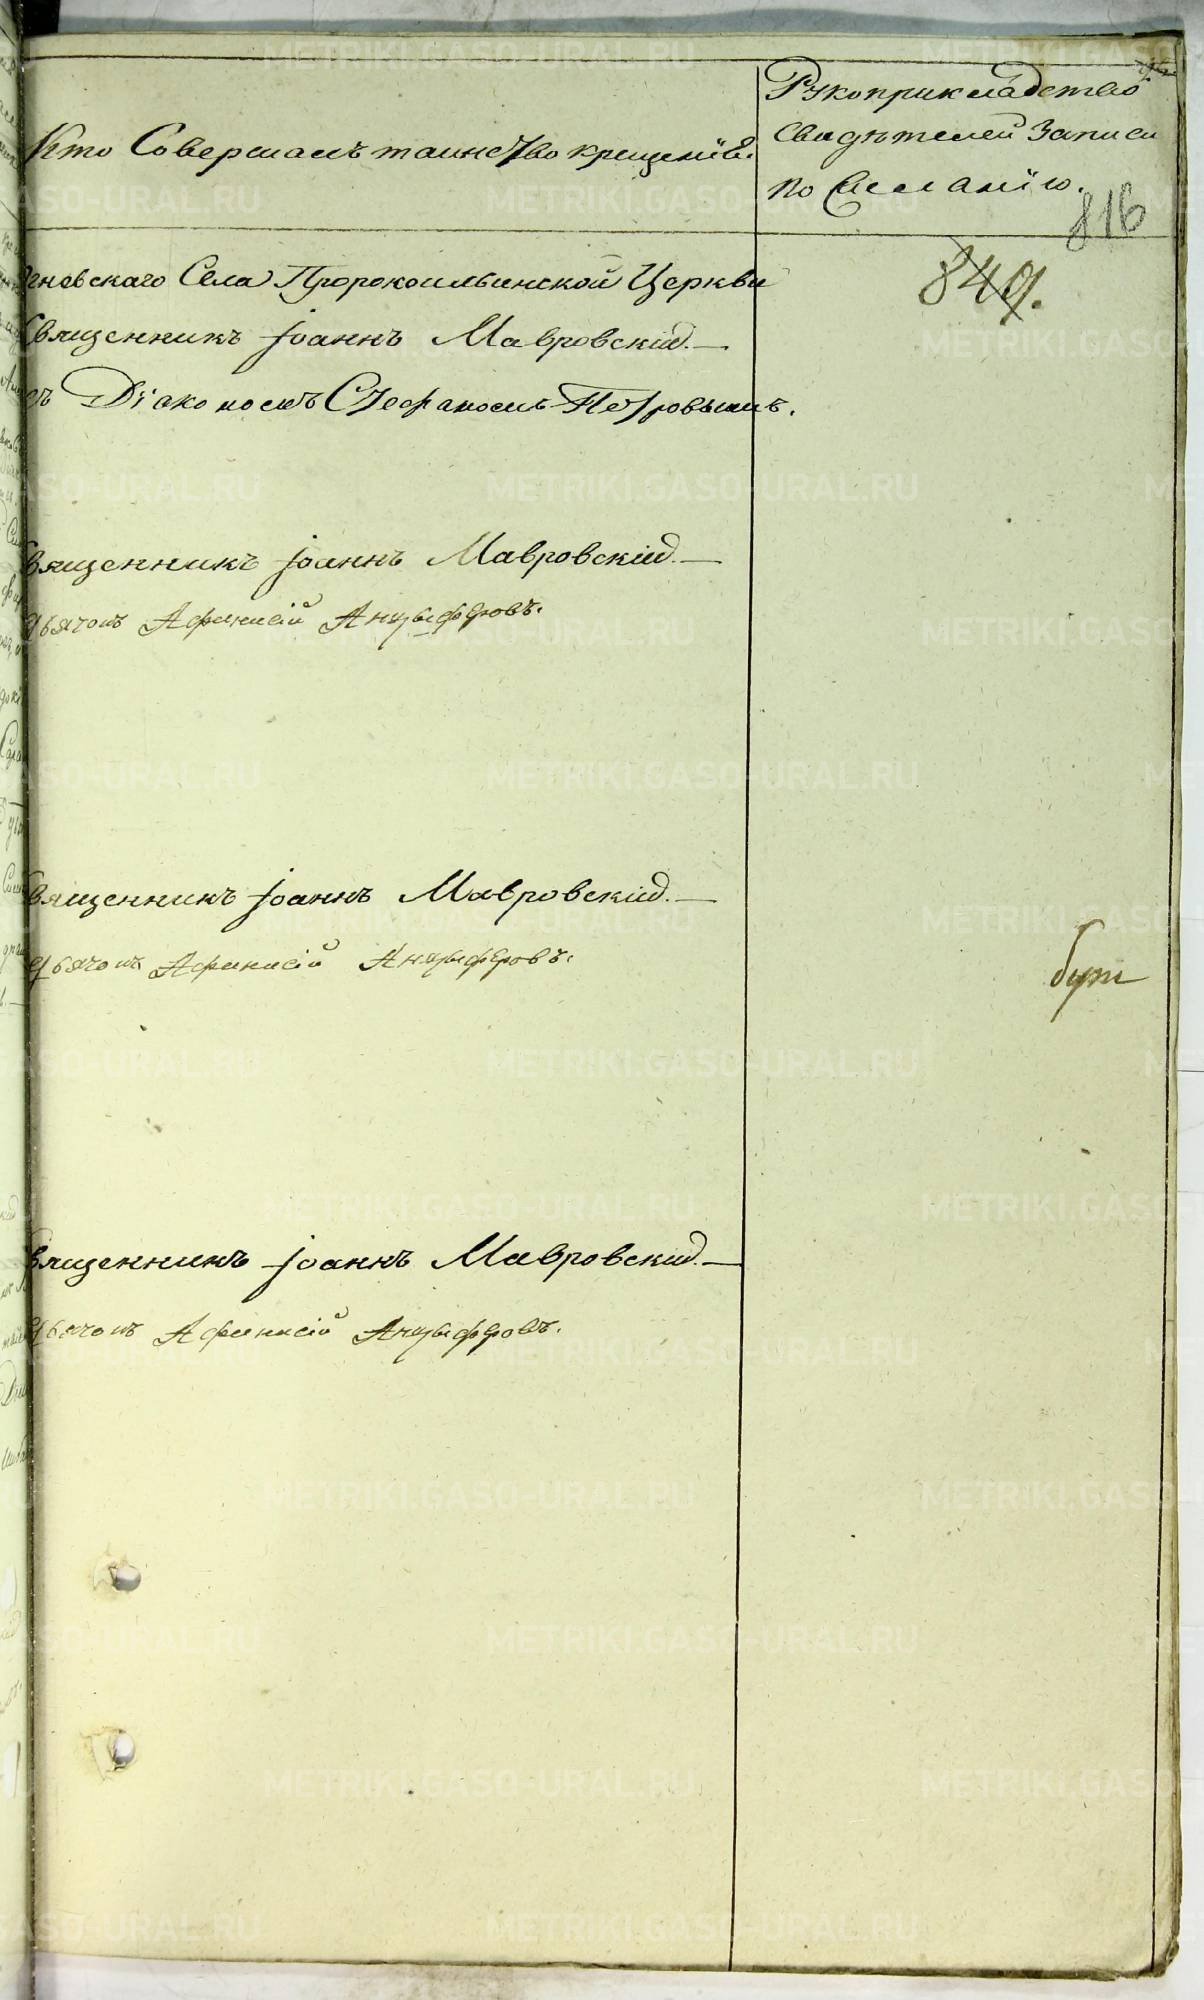 Кто Совершалъ таинство крещенїя.
Рукоприкладство
Свидѣтелей Записи
по Желанїю.
816
849.
Села Пророкоильинской Церкви
Священникъ Іоаннъ Мавровскій.—
съ Дїакономъ Стефаномъ Петровымъ.
Священникъ Іоаннъ Мавровскій.—
Дьячокъ Афанасій Анцыфѣровъ.
Священникъ Іоаннъ Мавровскій.—
Дьячокъ Афанасій Анцыфѣровъ.
Священникъ Іоаннъ Мавровскій.—
Дьячокъ Афанасій Анцыфѣровъ.
METRIKI.GASO-URAL.RU